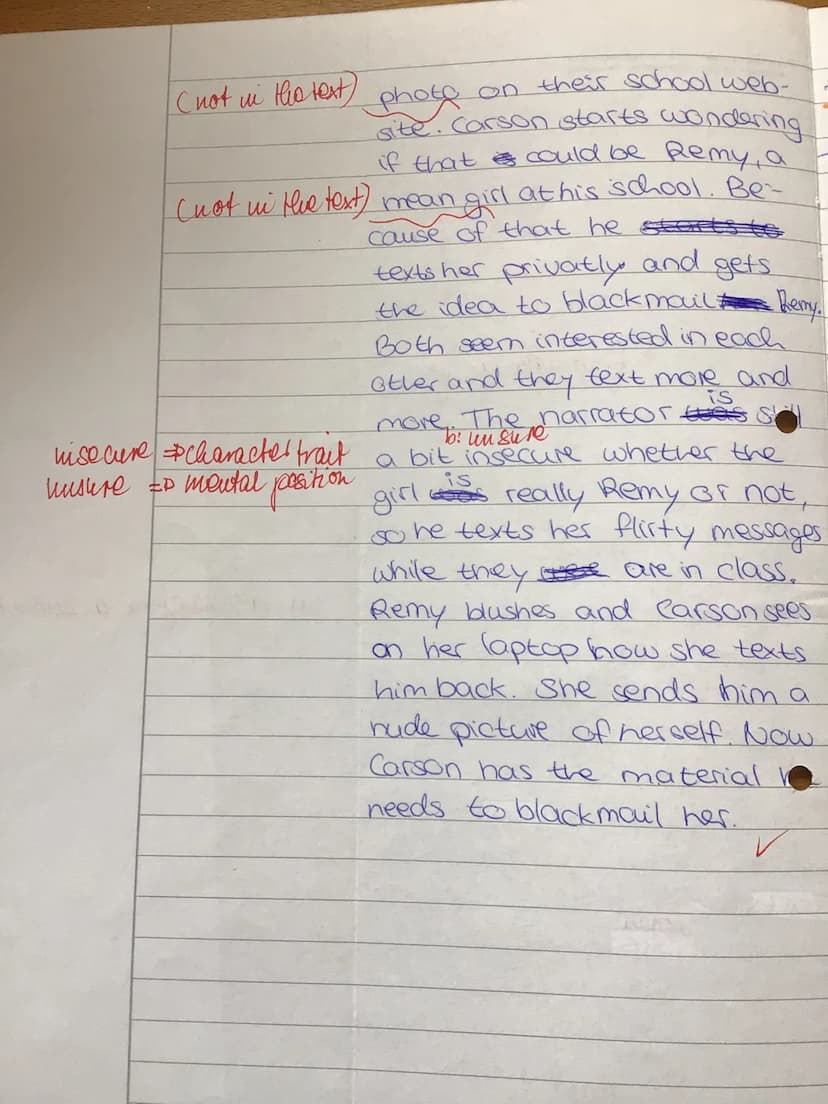 (not in the text) photo on their school web-
site. Carson starts wondering
if that could be Remy, a
(not in the text) mean girl at his school. Be-
cause of that he starts to
texts her privatly and gets
the idea to blackmail Remy.
Both seem interested in each
other and they text more and
is
more. The narrator was still
b: unsure
insecure => character trait a bit insecure whether the
is
unsure => mental position girl was really Remy or not,
so he texts her flirty messages
while they are in class.
Remy blushes and Carson sees
on her laptop how she texts
him back. She sends him a
nude picture of herself. Now
Carson has the material
needs to blackmail her.